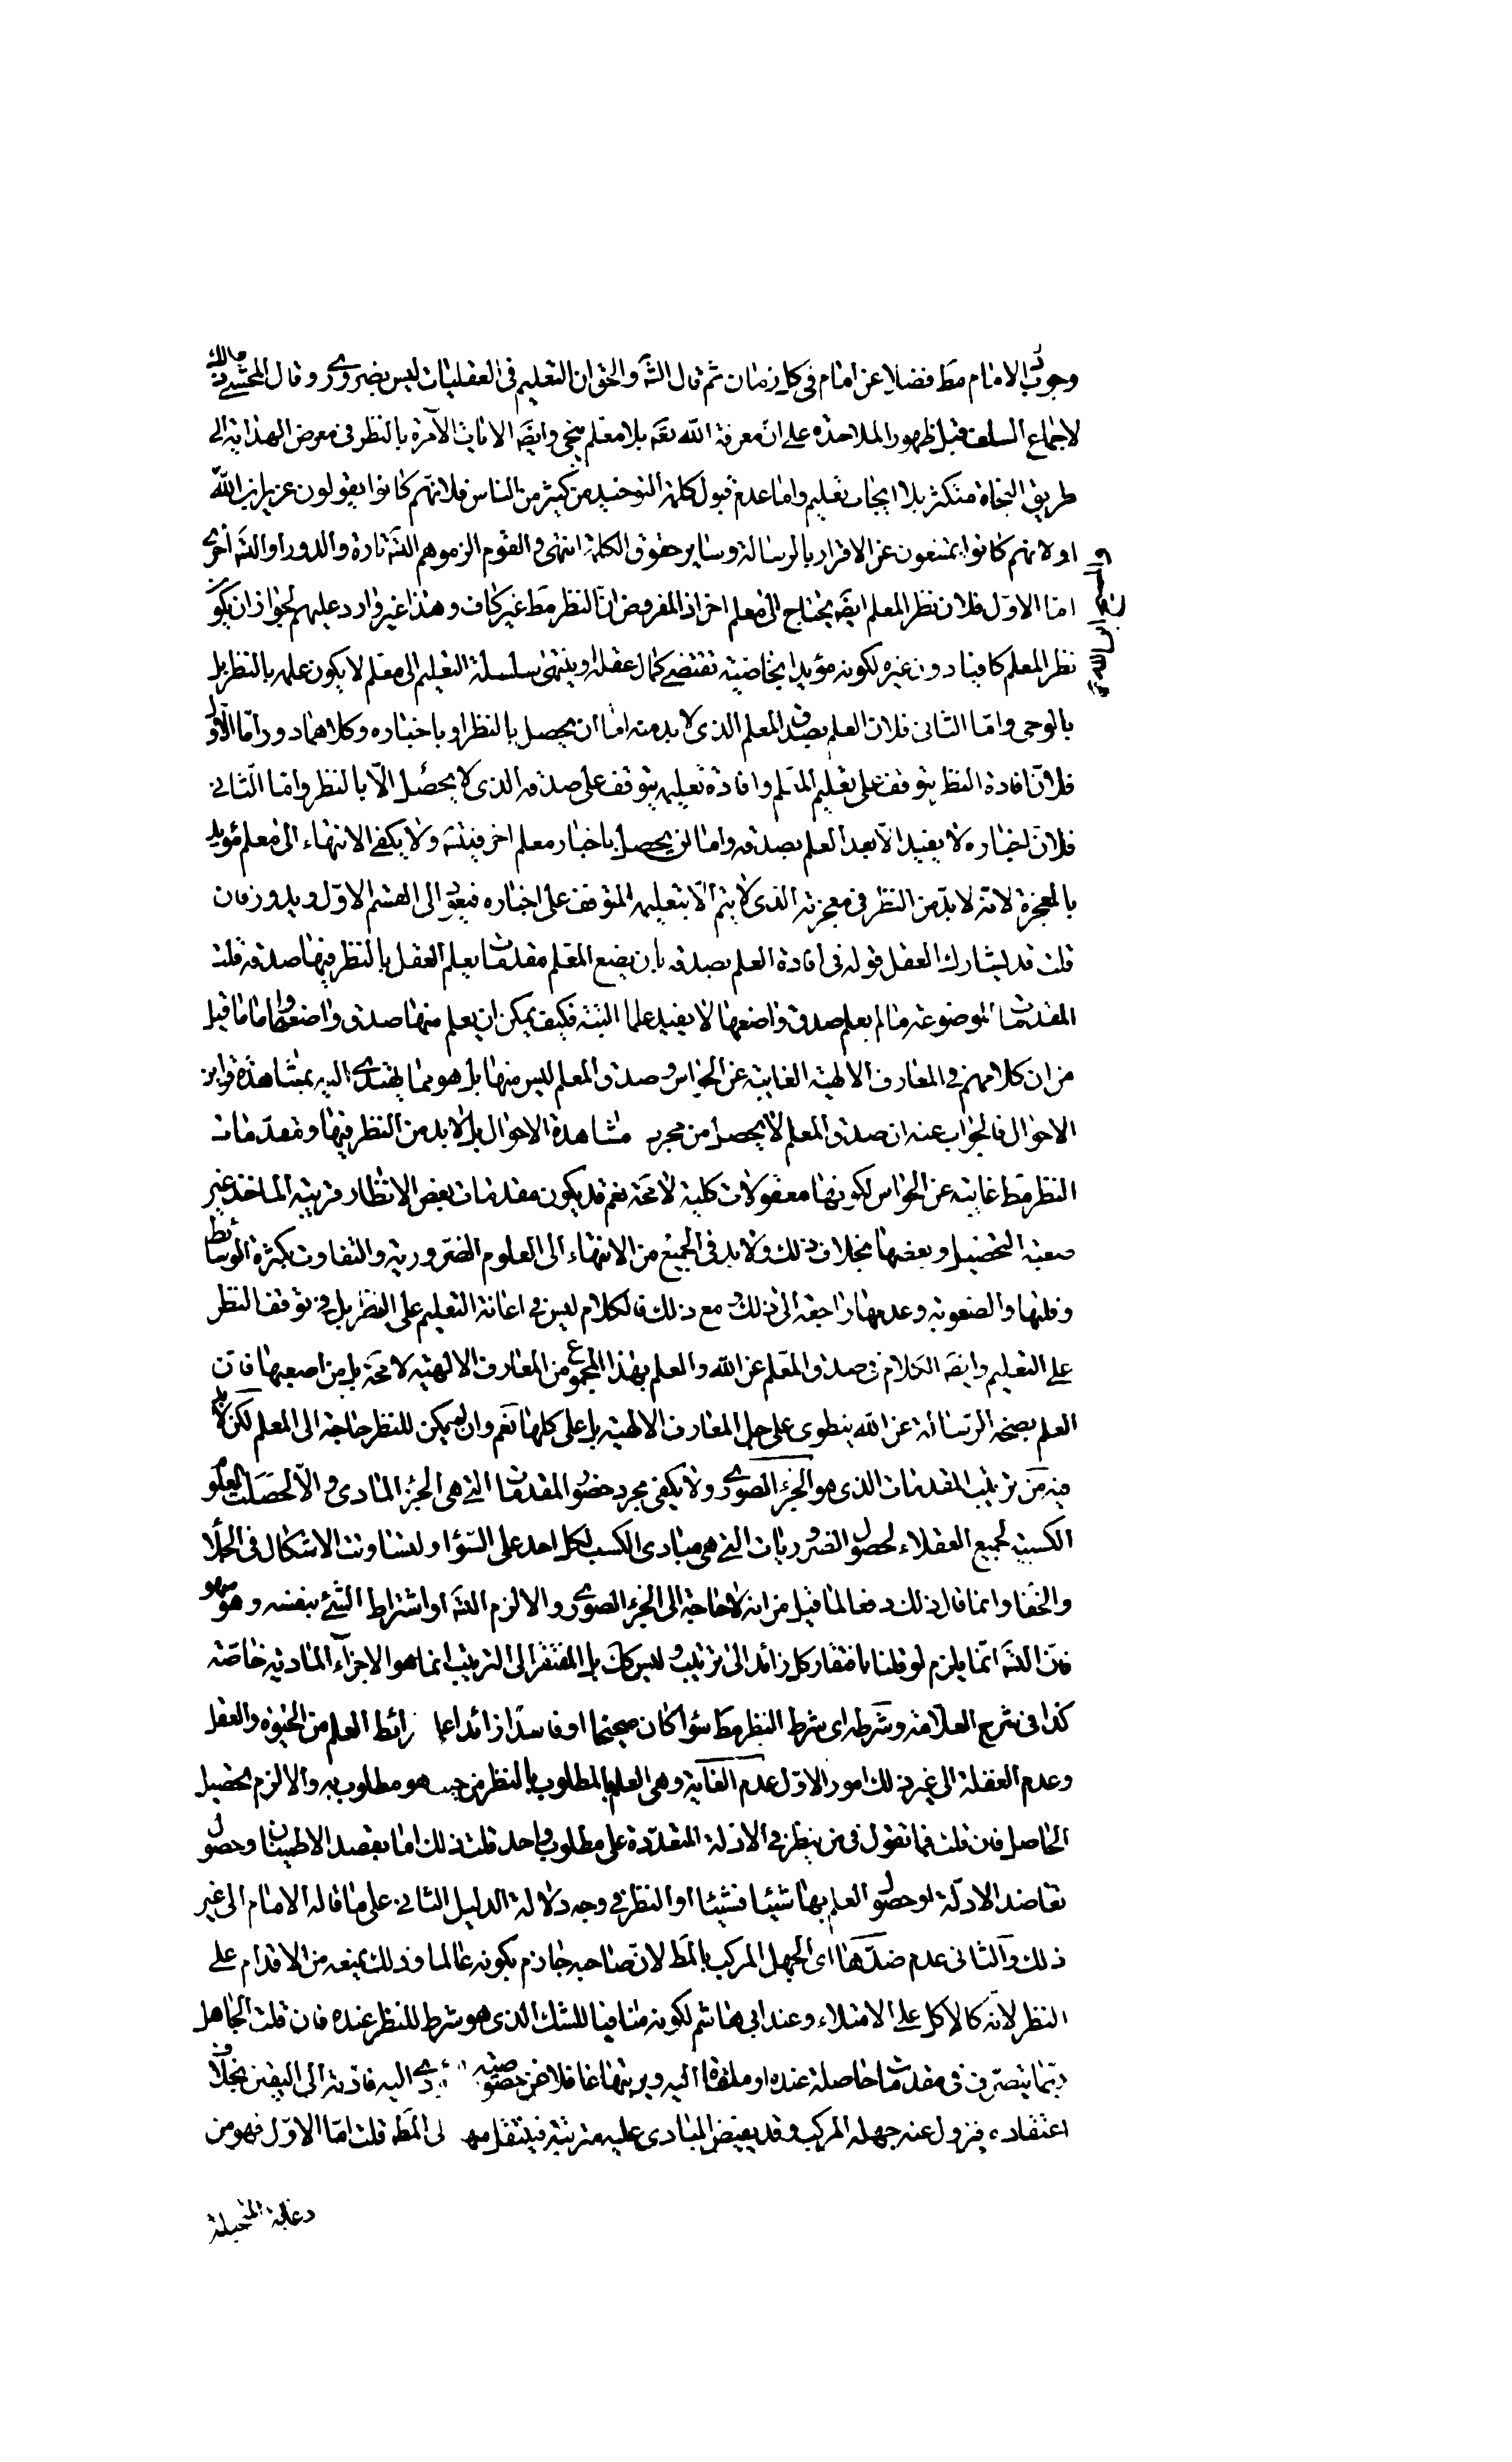 وجوب الامام مط فضلا عن امام فى كل زمان ثم قال الشه والحق ان التعليم فى العقليات ليس بضرورى وقال المحشى
لاجماع السلف قبل ظهور الملاحدة على ان معرفة الله تعه بلا معلم ينجى وايضه الايات الآمرة بالنظر فى معرض الهداية الى
طريق النجاة متكثر بلا ايجاب تعليم واما عدم قبول كلمة التوحيد من كثير من الناس فلانهم كانوا يقولون عزير ابن الله
والمسيح ابن الله
او لانهم كانوا يمتنعون عن الاقرار بالرسالة وساير حقوق الكلمة انتهى والقوم الزموهم التسه تارة والدور او التسه اخرى
اما الاول فلان نظر المعلم ايضه يحتاج الى معلم اخر اذ المفروض ان النظر مط غير كاف وهذا غير وارد عليهم لجواز ان يكون
نظر المعلم كافيا دون غيره لكونه مؤيدا بخاصية تقتضى كمال عقله او ينتهى سلسلة التعليم الى معلم لا يكون علمه بالنظر بل
بالوحى واما الثانى فلان العلم بصدق المعلم الذى لا بد منه اما ان يحصل بالنظر او باخباره وكلاهما دور اما الاول
فلان افادة النظر يتوقف على تعليم المعلم وافادة تعليمه يتوقف على صدقه الذى لا يحصل الا بالنظر واما الثانى
فلان اخباره لا يفيد الا بعد العلم بصدقه واما ان يحصل باخبار معلم اخر فيتسه ولا يكفى الانتهاء الى معلم مؤيد
بالمعجزة لانه لا بد من النظر فى معجزته الذى لا يتم الا بتعليمه المتوقف على اخباره فيعود الى القسم الاول ويدور فان
قلت قد يشارك العقل قوله فى افادة العلم بصدقه بان يضع المعلم مقدمات يعلم العقل بالنظر فيها صدقه قلت
المقدمات الموضوعة ما لم يعلم صدق واضعها لا يفيد علما البتة فكيف يمكن ان يعلم منها صدق واضعها واما ما قيل
من ان كلامهم فى المعارف الالهية الغايبة عن الحواس وصدق المعلم ليس منها بل هو مما يهتدى اليه بمشاهدة قراين
الاحوال فالجواب عنه ان صدق المعلم لا يحصل من مجرد مشاهدة الاحوال بل لا بد من النظر فيها ومقدمات
النظر مط غايبة عن الحواس لكونها معقولات كلية لا محة نعم قد يكون مقدمات بعض الانظار قريبة الماخذ غير
صعبة التحصيل وبعضها بخلاف ذلك ولا بد فى الجميع من الانتهاء الى العلوم الضرورية والتفاوت بكثرة الوسائط
وقلتها والصعوبة وعدمها راجعة الى ذلك ومع ذلك فالكلام ليس فى اعانة التعليم على النظر بل فى توقف النظر
على التعليم وايضه الكلام فى صدق المعلم عن الله والعلم بهذا المجموع من المعارف الالهية لا محة بل من اصعبها فان
العلم بصحة الرسالة عن الله ينطوى على جل المعارف الالهية بل على كلها نعم وان لم يكن للنظر حاجة الى المعلم لكن لا بد
فيه من ترتيب المقدمات الذى هو الجزء الصورى ولا يكفى مجرد حضور المقدمات التى هى الجزء المادى والا لحصلت العلوم
الكسبية لجميع العقلاء لحصول الضروريات التى هى مبادى الكسب لكل احد على السواء ولتساوت الاشكال فى الجلا
والخفا وانما قال ذلك دفعا لما قيل من انه لا حاجة الى الجزء الصورى والا لزم التسه او اشتراط الشئ بنفسه وهو سهو
فان التسه انما يلزم لو قلنا بافتقار كل زائد الى ترتيب وليس كك بل المفتقر الى الترتيب انما هو الاجزآء المادية خاصة
كذا فى شرح العلامة وشرطه اى شرط النظر مط سواء كان صحيحا او فاسدا زائدا على شرائط العلم من الحيوة والعقل
وعدم الغفلة الى غير ذلك امور الاول عدم الغاية وهى العلم بالمطلوب بالنظر من حيث هو مطلوب به والا لزم تحصيل
الحاصل فان قلت فما تقول فى من ينظر فى الادلة المتعددة على مطلوب واحد قلت ذلك اما بقصد الاطمينان وحصول
تعاضد الادلة او حصول العلم بها شيئا فشيئا او النظر فى وجه دلالة الدليل الثانى على ما قاله الامام الى غير
ذلك والثانى عدم ضدها اى الجهل المركب بالمط لان صاحبه جازم بكونه عالما وذلك يمنعه من الاقدام على
النظر لانه كالاكل على الامتلاء وعند ابى هاشم لكونه منافيا للشك الذى هو شرط للنظر عنده فان قلت الجاهل
ربما يتصرف فى مقدمات حاصلة عنده او ملقاة اليه ويرتبها غافلا عن خصوصية اليه فادته الى اليقين بخلاف
اعتقاده فيزول عنه جهله المركب وقد يفيض المبادى عليه مترتبة فينتقل منه الى المطه قلت اما الاول فهو من